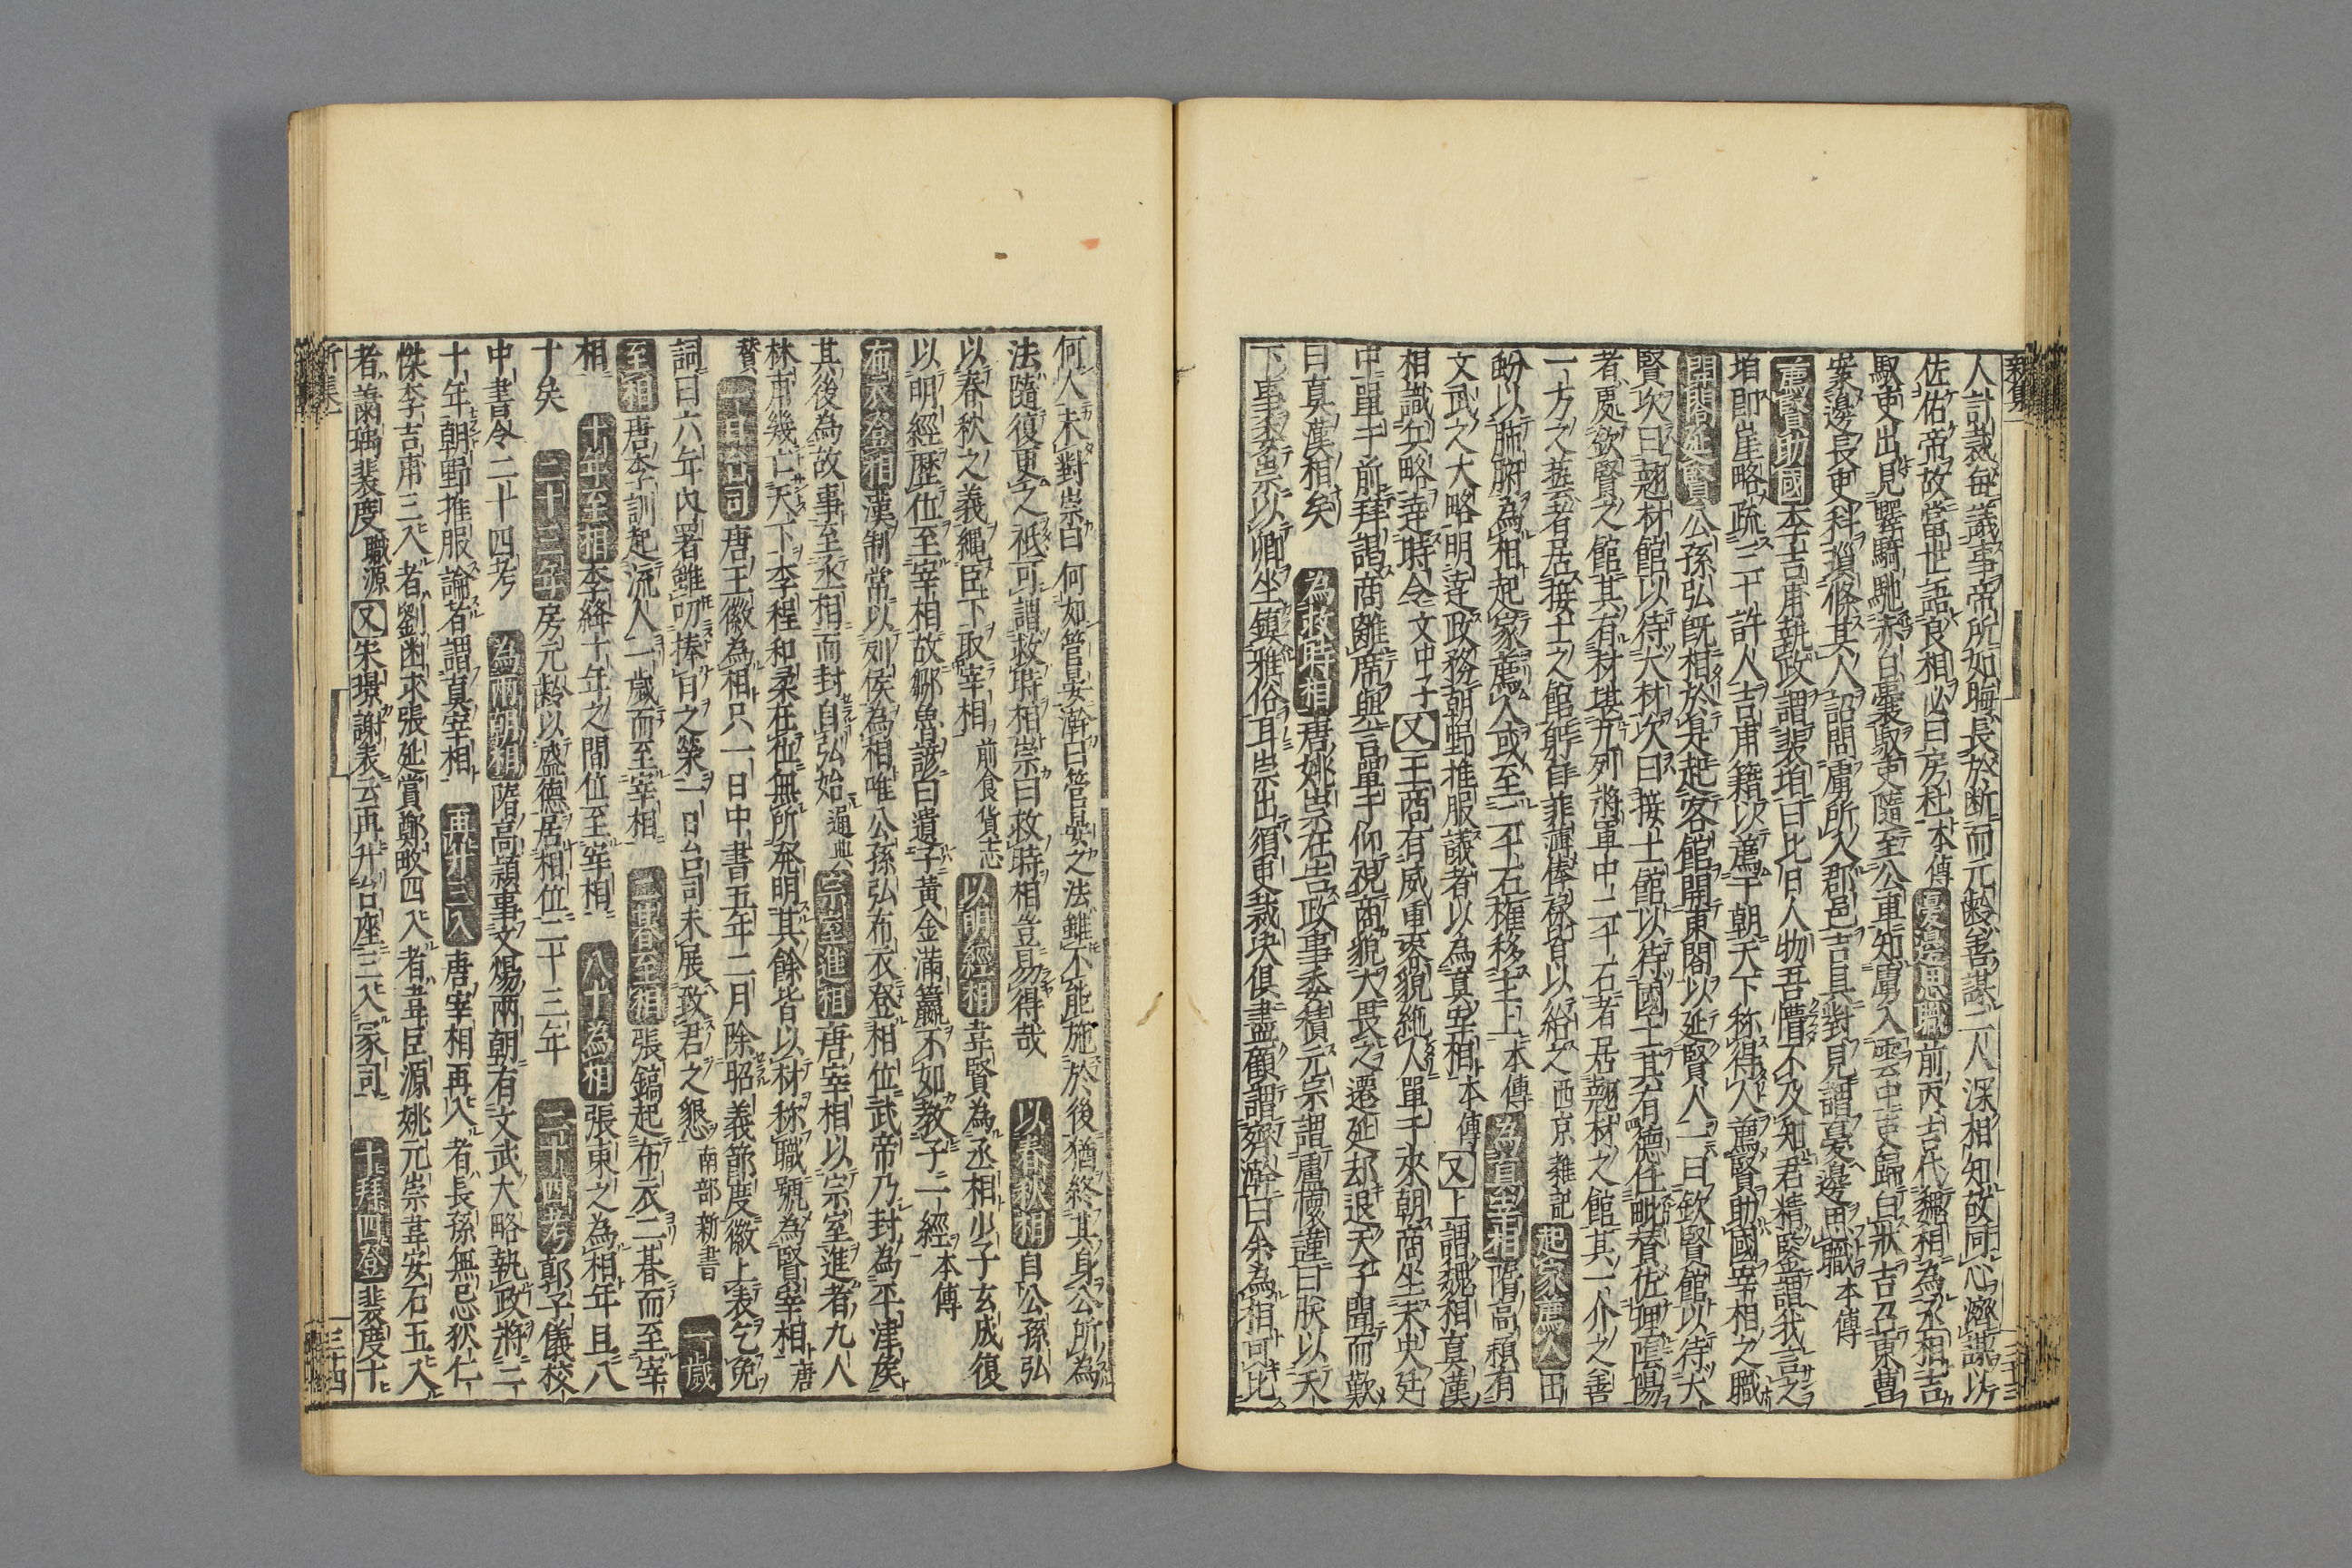 人計裁毎議事帝所如晦長於断而元齡善謀二人深相知故同心濟謀以
佐佑帝故當世語良相必曰房杜本傳憂邊思職前丙吉代魏相為丞相吉
馭吏出見驛騎馳赤白囊馭吏隨至公車知虜入雲中吏歸白狀吉召東曹
案邊長吏科瑣條其人詔問虜所入郡邑吉具對見謂憂邊思職本傳
薦賢助國李吉甫執政謂裴垍曰比日人物吾懵不及知君精鑒謂我言之
垍即崖略疏三十許人吉甫籍以薦于朝天下称得人薦賢助國宰相之職
開閤延賢公孫弘既相於是起客館開東閤以延賢人一曰欽賢館以待大
賢次曰翹材館以待大材次曰接士館以待國士其有德任毗賛佐理陰陽
者處欽賢之館其有材堪九列將軍中二千石者居翹材之館其一介之善
一方之藝者居接士之館躬自菲薄俸禄皆以給之西京雜記起家薦人田
蚡以肺腑為相起家薦人或至二千石權移主上本傳為真宰相隋高熲有
文武之大略明達政務朝野推服議者以為真宰相本傳又上謂魏相真漢
相識兵略達時令文中子又王商有威重容貌絶人單于來朝商坐未央廷
中單于前拜謁商離席與言單于仰視商貌大畏之遷延却退天子聞而歎
曰真漢相矣 為救時相唐姚崇在告政事委積元宗謂盧懷謹曰朕以天
下事委崇以卿坐鎮雅俗耳崇出須臾裁决倶盡顧謂齊澣曰余為相可比
何人未對崇曰何如管晏澣曰管晏之法雖不能施於後猶終其身公所為
法隨復更之祇可謂救時相崇曰救時相豈易得哉 以春秋相自公孫弘
以春秋之義繩臣下取宰相前食貨志以明經相韋賢為丞相少子玄成復
以明經歷位至宰相故鄒魯諺曰遺子黃金滿籯不如教子一經本傳
布衣登相漢制常以列侯為相唯公孫弘布衣登相位武帝乃封為平津侯
其後為故事至丞相而封自弘始通典宗室進相唐宰相以宗室進者九人
林甫幾亡天下李程和柔在位無所発明其餘皆以材称職號為賢宰相唐
賛 一日台司唐王徽為相只一日中書五年二月除昭義節度徽上表乞免
詞曰六年内署雖叨捧日之榮一日台司未展致君之懇南部新書 一歳
至相唐李訓起流人一歳而至宰相 二朞至相張鎬起布衣二朞而至宰
相 十年至相李絳十年之間位至宰相 八十為相張柬之為相年且八
十矣 三十三年房元齡以盛德居相位三十三年 二十四考郭子儀校
中書令二十四考 為兩朝相隋高熲事文煬兩朝有文武大略執政將二
十年朝野推服論者謂真宰相 再升三入唐宰相再入者長孫無忌狄仁
傑李吉甫三入者劉幽求張延賞鄭畋四入者韋巨源姚元崇韋安石五入
者蕭瑀裴度職源又宋璟謝表云再升台座三入冢司 十拜四登裴度十
新集一
三十三
三四